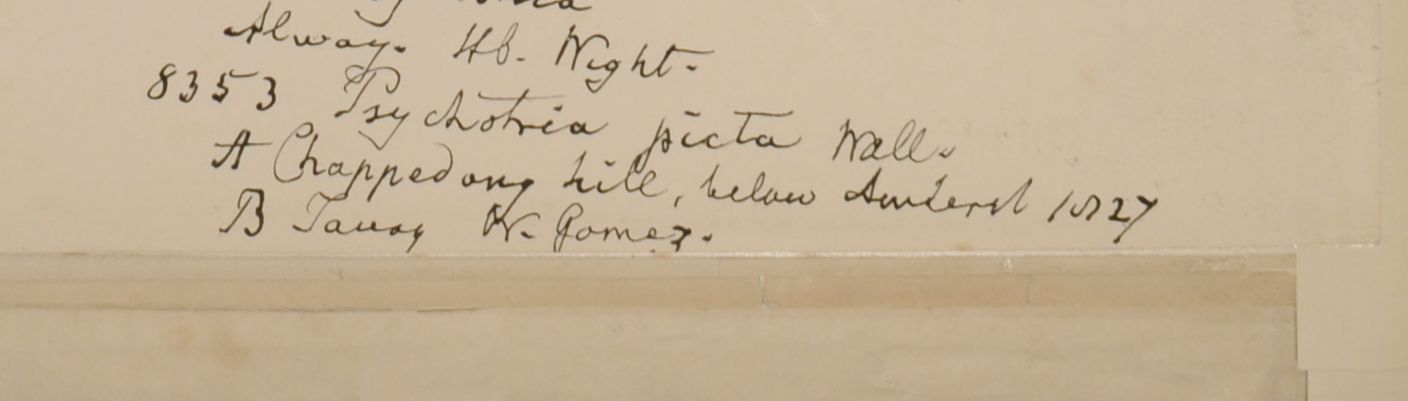 Alway. Hb. Wight.
8353 Psychotria picta Wall.
A Chappedong hill, below Amherst 1827
B Tavoy W. Gomez.